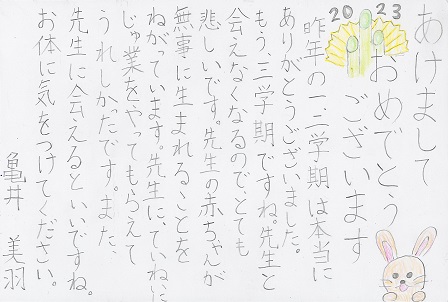 2023
あけまして
おめでとう
ございます
昨年の一、二学期は本当に
ありがとうございました。
もう、三学期ですね。先生と
会えなくなるので、とても
悲しいです。先生の赤ちゃんが
無事に生まれることを
ねがっています。先生に、ていねいに
じゅ業をやってもらえて
うれしかったです。また、
先生に会えるといいですね。
お体に気をつけてください。
亀井 美羽